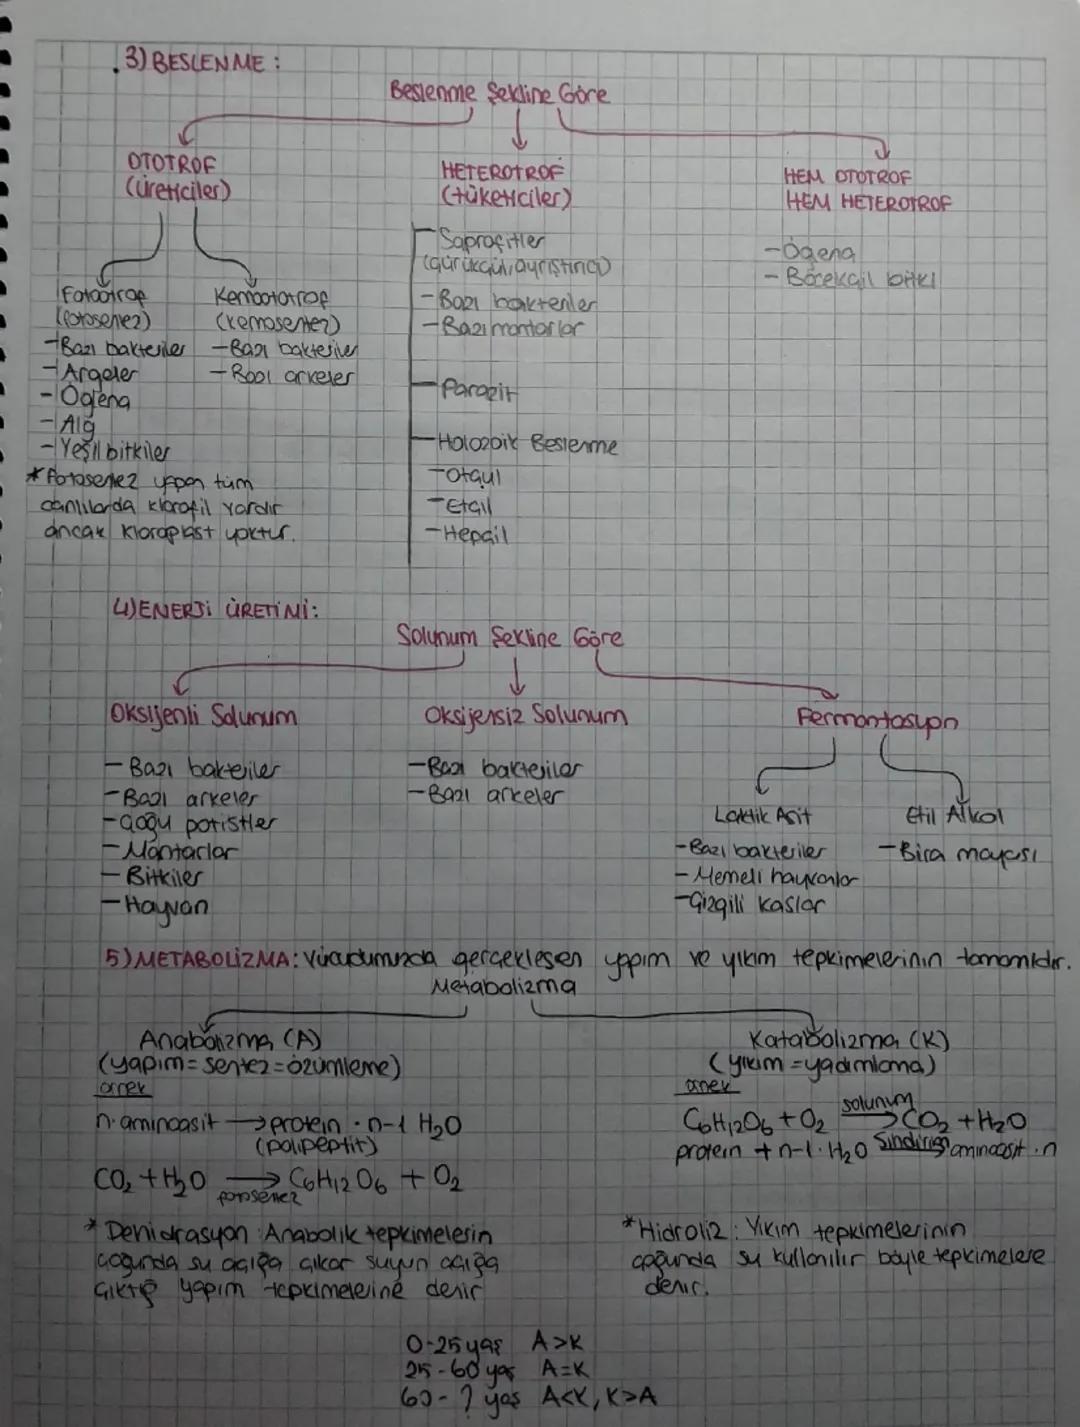 3) BESLENME :
Beslenme Şekline Göre
OTOTROF
(üreticiler)
Fotootrof
(fotosentez)
-Bazı bakteriler
-Argeler
-Öglena
-Alg
-Yeşil bitkiler
Kemoototrof
(kemosentez)
-Bazı bakteriler
-Bazı arkeler
* Fotosentez yapan tüm
canlılarda klorofil vardır
ancak kloroplast yoktur.
HETEROTROF
(tüketiciler)
-Saprofitler
(çürükçül, ayrıştırıcı)
-Bazı bakteriler
-Bazı mantarlar
-Parazit
-Holozoik Beslenme
-Otçul
-Etçil
-Hepçil
HEM OTOTROF
HEM HETEROTROF
-Öglena
-Böcekçil bitki
4) ENERJİ ÜRETİMİ:
Solunum Şekline Göre
Oksijenli Solunum
-Bazı bakteriler
-Bazı arkeler
-Çoğu potistler
-Mantarlar
-Bitkiler
-Hayvan
Oksijensiz Solunum
-Bazı bakteriler
-Bazı arkeler
Fermantasyon
Laktik Asit
-Bazı bakteriler
-Memeli hayvanlar
-Çizgili kaslar
Etil Alkol
-Bira mayası
5) METABOLİZMA: Vücudumuzda gerçekleşen yapım ve yıkım tepkimelerinin tamamıdır.
Metabolizma
Anabolizma (A)
(yapım = sentez = özümleme)
örnek
n. aminoasit → protein . n-1 H₂O
(polipeptit)
CO₂ + H₂O → C₆H₁₂O₆ + O₂
fotosentez
* Dehidrasyon : Anabolik tepkimelerin
çoğunda su açığa çıkar suyun açığa
çıktığı yapım tepkimelerine denir
Katabolizma (K)
(yıkım = yadımlama)
örnek
C₆H₁₂O₆ + O₂ solunum → CO₂ + H₂O
protein + n-1 . H₂O Sindirim aminoasit . n
* Hidroliz : Yıkım tepkimelerinin
çoğunda su kullanılır böyle tepkimelere
denir.
0-25 yaş A>K
25-60 yaş A=K
60-? yaş A<K, K>A